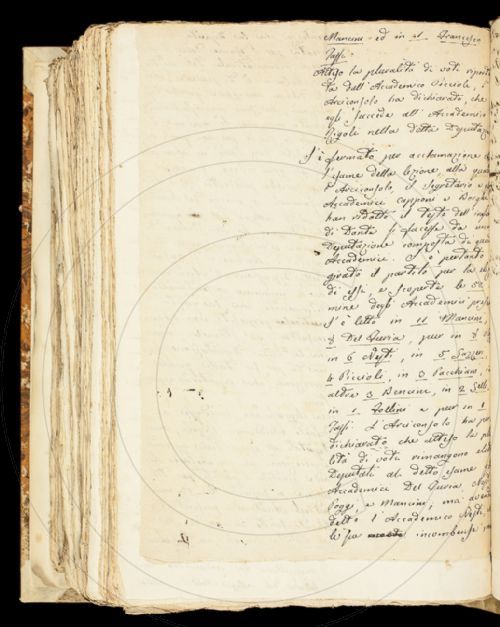 Mancini ed in 11 Francesco
Tassi.
Atteso la pluralità di voti riporta
ta dall'Accademico Piccioli, l'
Arciconsolo ha dichiarato, che
egli succeda all'Accademico
Rigoli nella detta Deputaz
S'è fermato per acclamazione
l'esame della lezione, alla quale
l'Arciconsolo, il Segretario e
Accademici Capponi e Borghi
han ridotto il Testo dell'Inf
di Dante si facesse da una
Deputazione composta di qua
Accademici. S'è pertanto
girato il partito per la
di essi, e scoperte le
mine degli Accademici pres
s'è letto in 11 Mancini,
8 Del Furia, pure in
in 6 Nesti, in 5
4 Piccioli, in 3 Pacchiani,
altre 3 Bencini, in 2
in 1. Follini e pur in 1
Tassi. L'Arciconsolo ha
dichiarato che atteso la plu
lità di voti rimangono
Deputati al detto esame
Accademici Del Furia
Poggi, e Mancini, ma
detto l'Accademico Nesti
incombenze